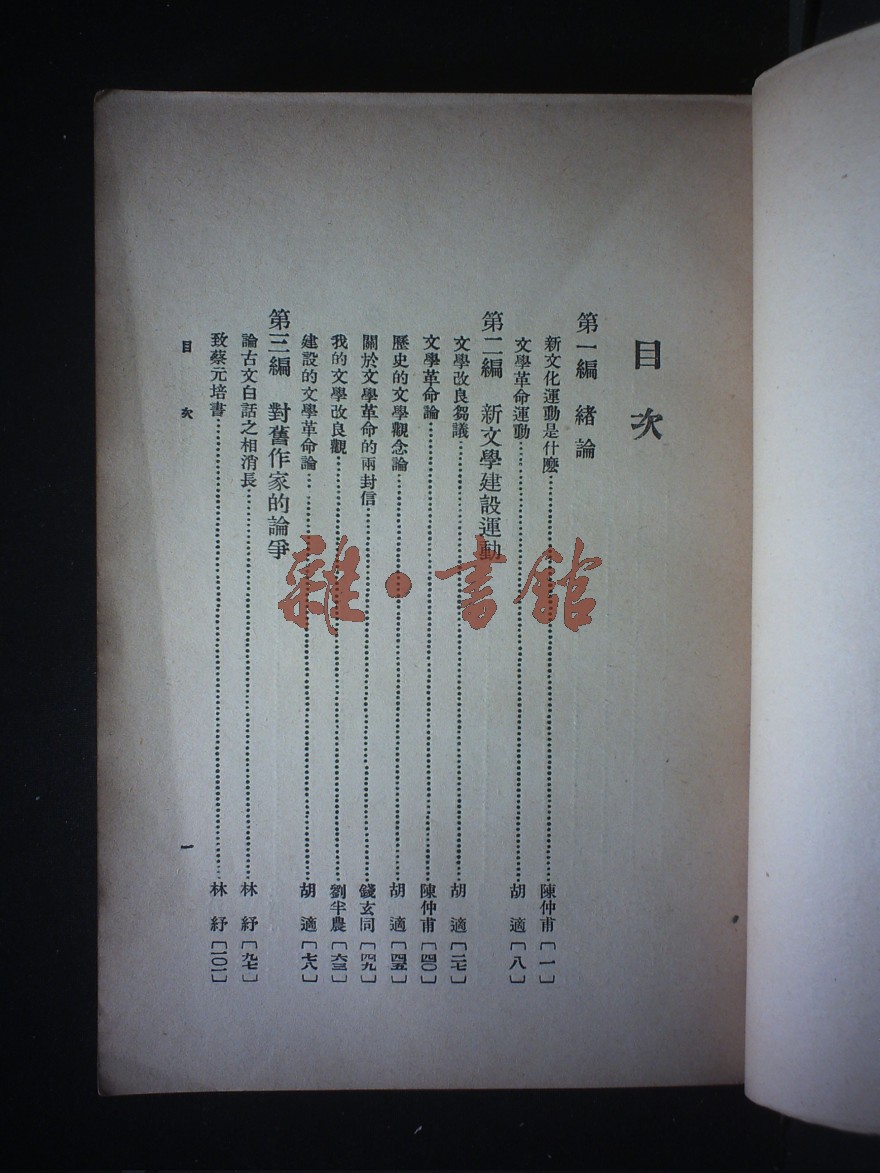 目次
第一編　緒論
新文化運動是什麽……陳仲甫〔一〕
文學革命運動……胡適〔八〕
第二編　新文學建設運動
文學改良芻議……胡適〔二七〕
文學革命論……陳仲甫〔四〇〕
歷史的文學觀念論……胡適〔四五〕
關於文學革命的兩封信……錢玄同〔四九〕
我的文學改良觀……劉半農〔六三〕
建設的文學革命論……胡適〔七八〕
第三編　對舊作家的論爭
論古文白話之相消長……林紓〔九七〕
致蔡元培書……林紓〔一〇一〕
目次　一
雜・書館